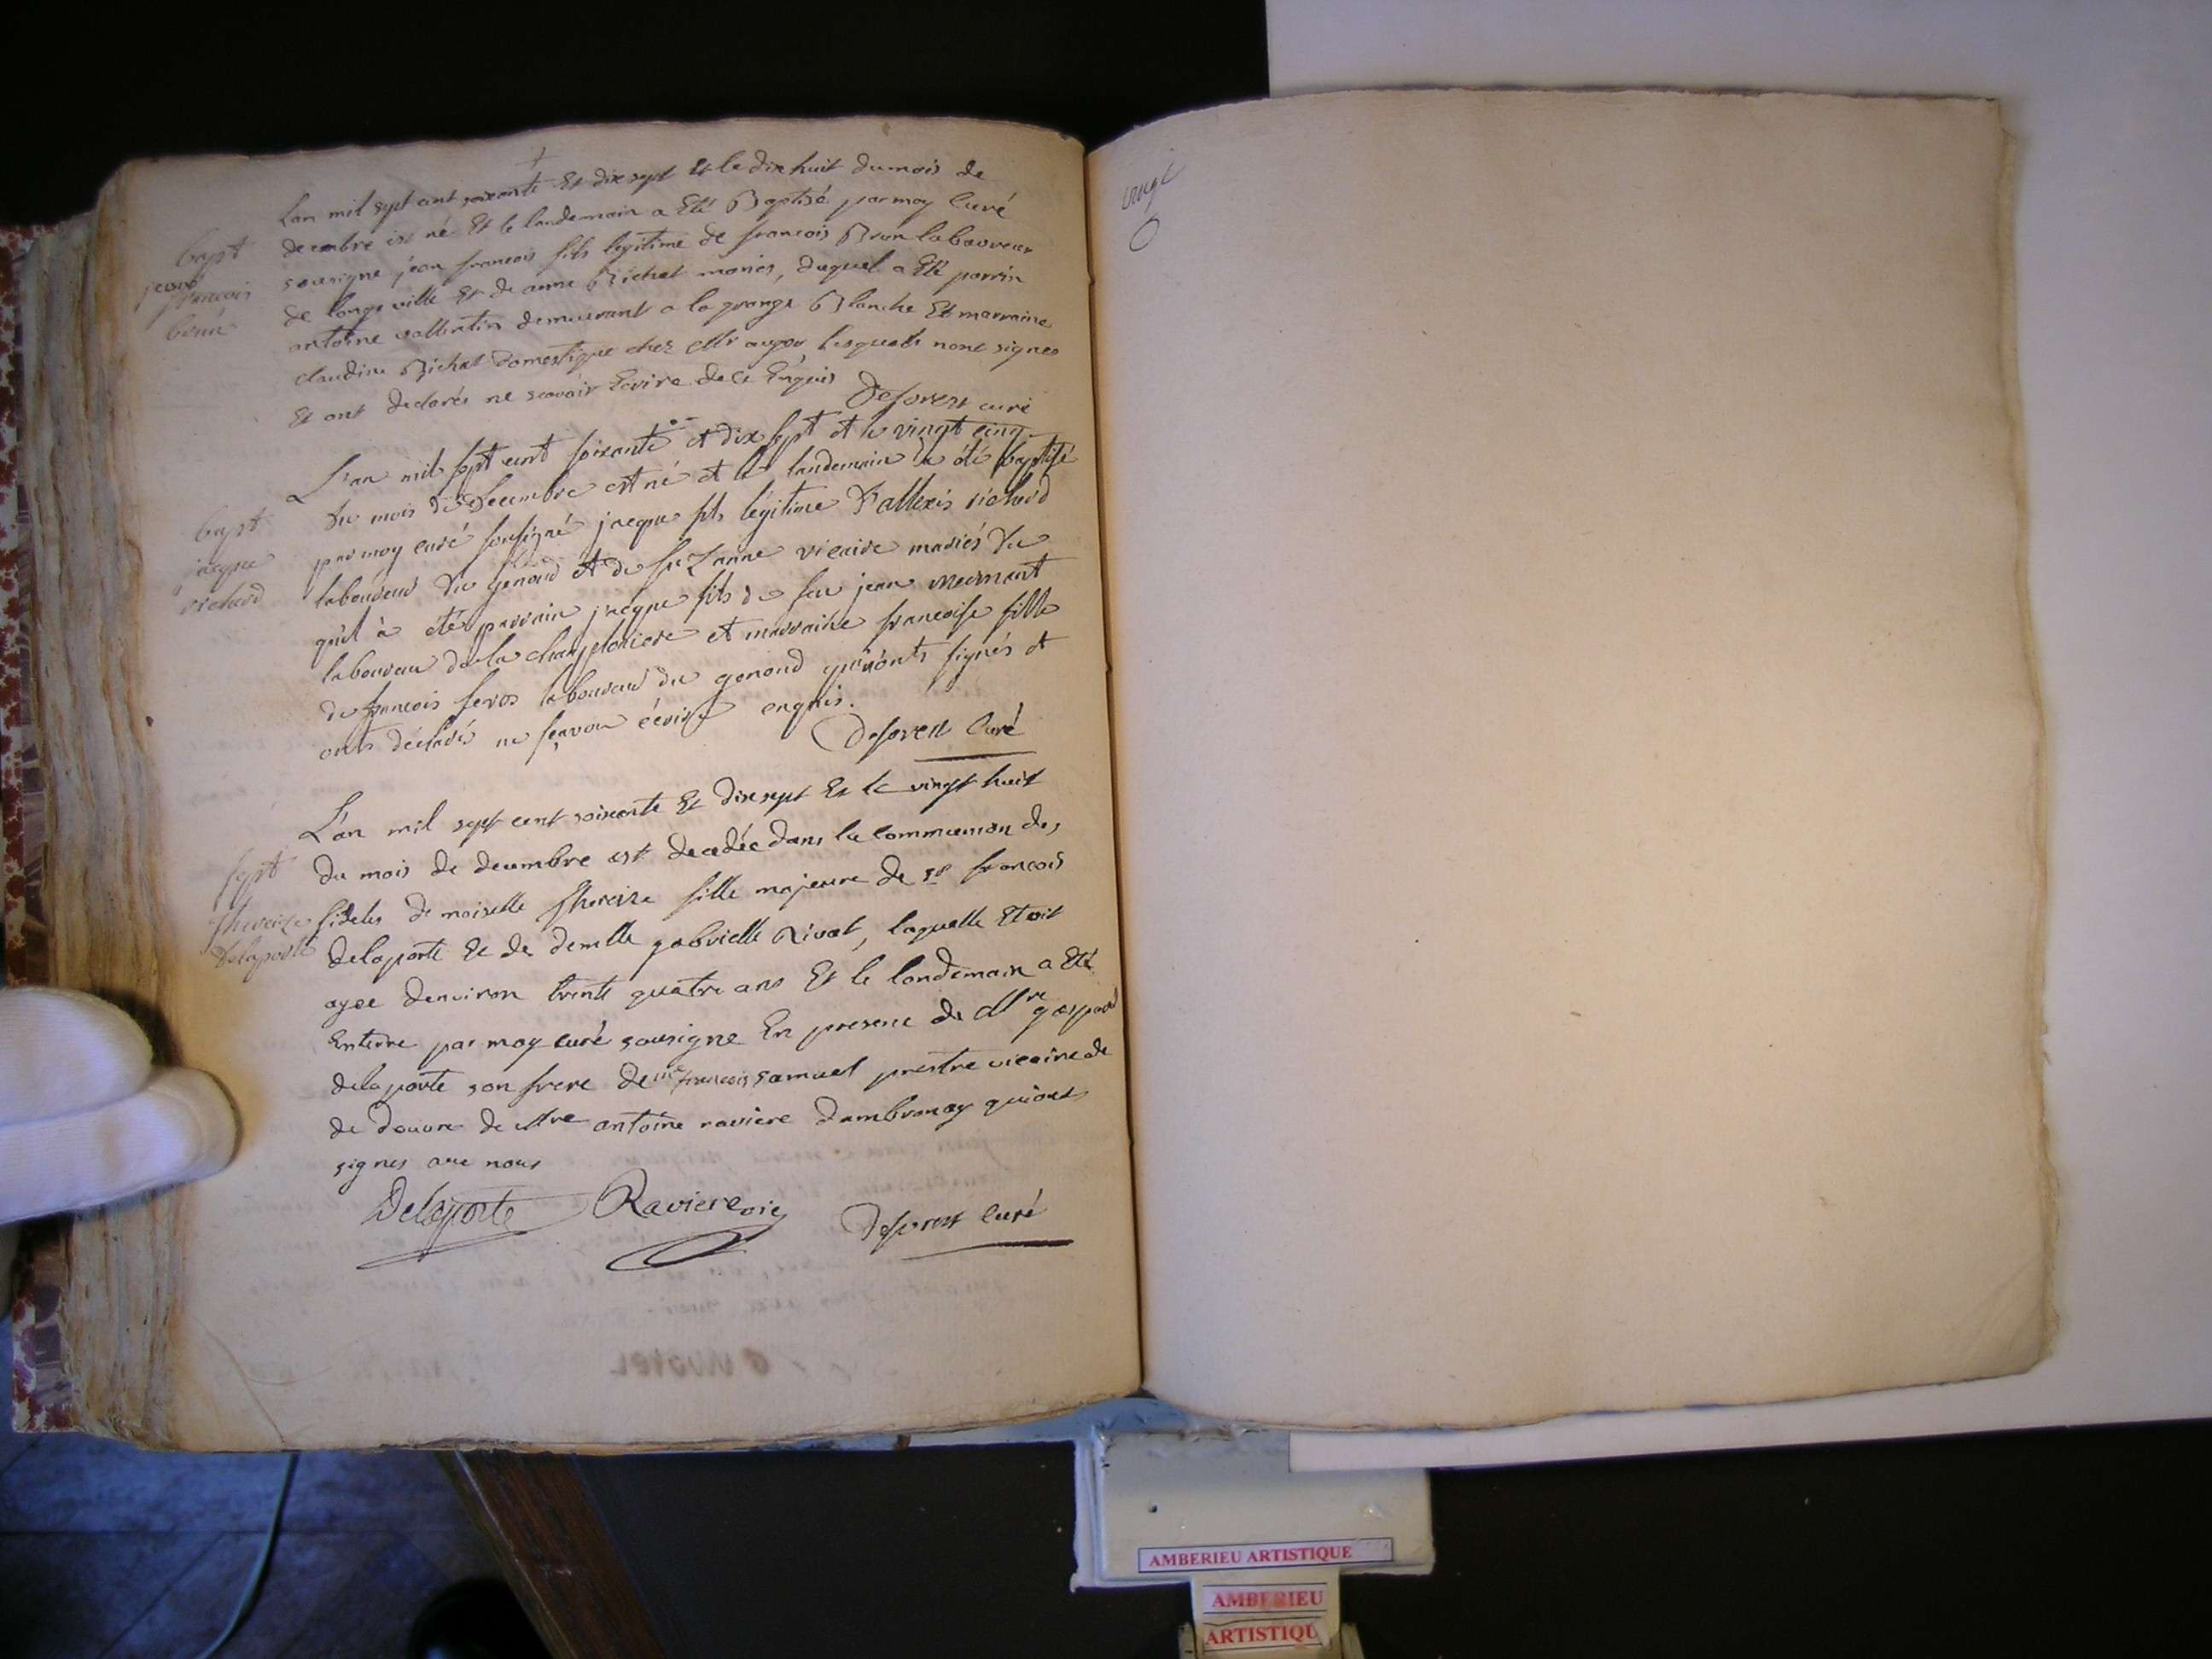 L'an mil sept cent soixante Et dix sept Et le dix huit du mois de
decembre est né Et le landemain a Eté Baptisé par moy Curé
bapt
jean
francois
brun
sousigne jean francois fils legitime de francois Brun laboureur
de longeville Et de anne Bichat mariés, duquel a Eté parrin
antoine vallentin demeurant a la grange Blanche Et marraine
claudine Bichat domestique chez Mr auger lesquels nont signes
Et ont declarés ne scavoir Ecrire de ce Enquis
Deforest curé
L'an mil sept cent soixante et dix sept et le vingt cinq
du mois de Decembre est né et le landemain a été baptisé
bapt
jacque
richard
par moy curé sousigné jacque fils légitime d'allexis richard
laboureur du genoud et de suzanne vicaire mariés du
quel à été parrain jacque fils de feu jean
laboureur de la et marraine francoise fille
de francois laboureur du genoud qui n'onts signés et
onts déclarés ne sçavoir écrire enquis.
Deforest Curé
L'an mil sept cent soixante Et dix sept Et le vingt huit
du mois de decembre est decedée dans la Communion des
sept
Thereize
Delaporte
fideles demoiselle therese fille majeure de sr francois
delaporte Et de demlle gabrielle Rivat, laquelle Etoit
agee denviron trente quatre ans Et le landemain a Eté
Enterre par moy curé sousigne En presence de Mre gaspard
delaporte son frere de mre francois samuel prestre vicaire de
de douvre de Mre antoine raviere dambronay qui ont
signes avec nous
Delaporte Raviere vic Deforest Curé
AMBERIEU ARTISTIQUE
AMBERIEU
ARTISTIQU